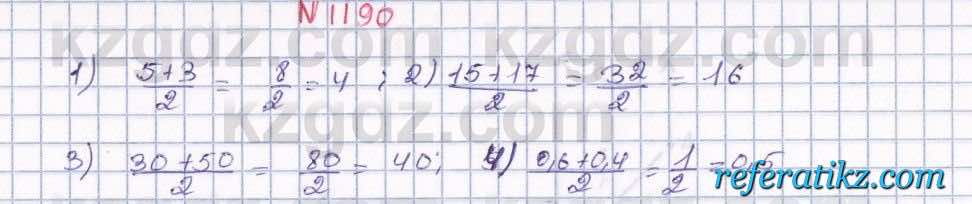 N 1190
kzgdz.com kzgdz.com
1) (5+3)/2 = 8/2 = 4 ; 2) (15+17)/2 = 32/2 = 16
kzgdz.com
3) (30+50)/2 = 80/2 = 40; 4) (0,6+0,4)/2 = 1/2 = 0,5
referatikz.com